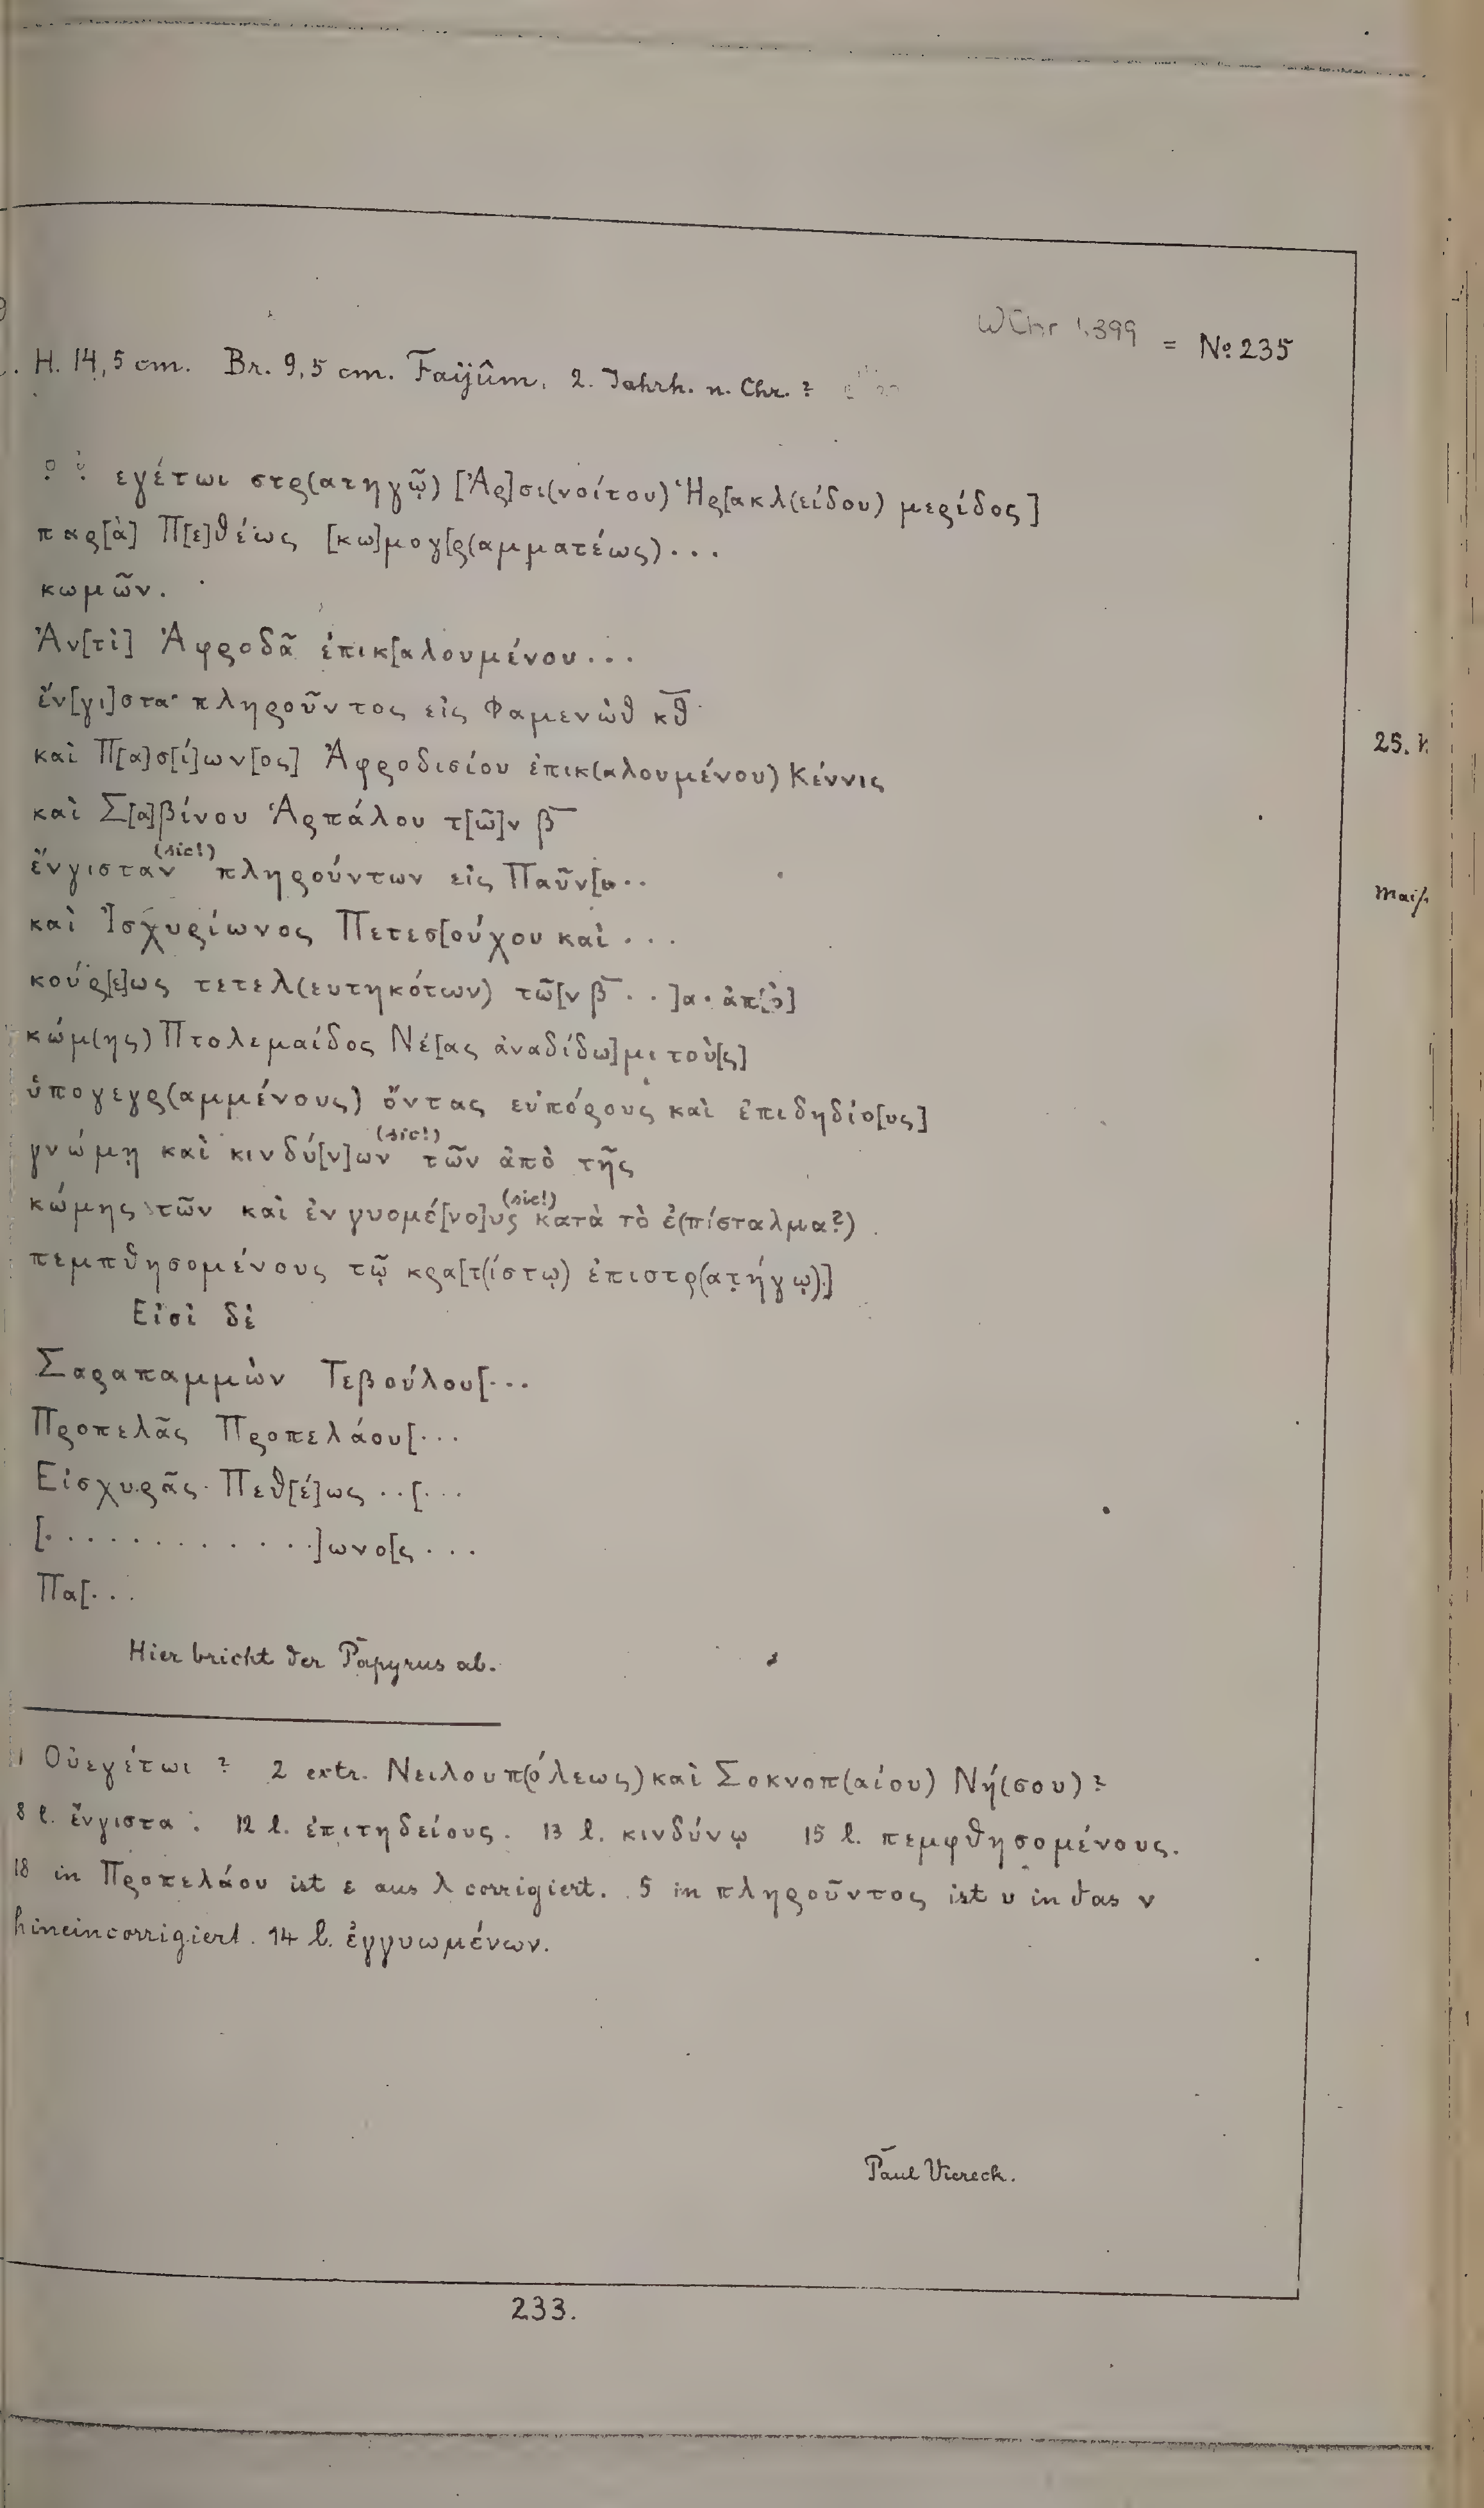 WChr 1.399 = No 235
H. 14,5 cm. Br. 9,5 cm. Faijûm. 2. Jahrh. n. Chr. ?
εγέτωι στρ(ατηγῷ) [Ἀρ]σι(νοίτου) Ἡρ[ακλ(είδου) μερίδος]
παρ[ὰ] Π[ε]θέως [κω]μογ[ρ(αμματέως) . . .
κωμῶν.
Ἀν[τὶ] Ἀφροδᾶ ἐπικ[αλουμένου . . .
ἔν[γι]στα πληροῦντος εἰς Φαμενὼθ κθ̅
25.
καὶ Π[α]σ[ί]ων[ος] Ἀφροδισίου ἐπικ(αλουμένου) Κέννις
καὶ Σ[α]βίνου Ἁρπάλου τ[ῶ]ν β̅
ἔνγισταν (sic!) πληρούντων εἰς Παῦν[ι . .
καὶ Ἰσχυρίωνος Πετεσ[ούχου καὶ . . .
κούρ[ε]ως τετελ(ευτηκότων) τῶ[ν β̅ . . ]α . ἀπ[ὸ]
κώμ(ης) Πτολεμαίδος Νέ[ας ἀναδίδω]μι τοὺ[ς]
ὑπογεγρ(αμμένους) ὄντας εὐπόρους καὶ ἐπιδηδίο[υς]
γνώμῃ καὶ κινδύ[ν]ων (sic!) τῶν ἀπὸ τῆς
κώμης τῶν καὶ ἐνγυομέ[νο]υς (sic!) κατὰ τὸ ἐ(πίσταλμα?)
πεμπθησομένους τῷ κρα[τ(ίστῳ) ἐπιστρ(ατήγῳ).]
Εἰσὶ δὲ
Σαραπαμμὼν Τεβούλου[. . .
Προπελᾶς Προπελάου[. . .
Εἰσχυρᾶς Πεθ[έ]ως . . [. . .
[. . . . . . . . . . . .]ωνο[ς . . .
Πα[. . .
Hier bricht der Papyrus ab.
1 Οὐεγέτωι ? 2 extr. Νειλουπ(όλεως) καὶ Σοκνοπ(αίου) Νή(σου) ?
8 l. ἔνγιστα . 12 l. ἐπιτηδείους. 13 l. κινδύνῳ 15 l. πεμφθησομένους.
18 in Προπελάου ist ε aus λ corrigiert. 5 in πληροῦντος ist υ in das ν
hineincorrigiert. 14 l. ἐγγυωμένων.
Paul Viereck.
233.